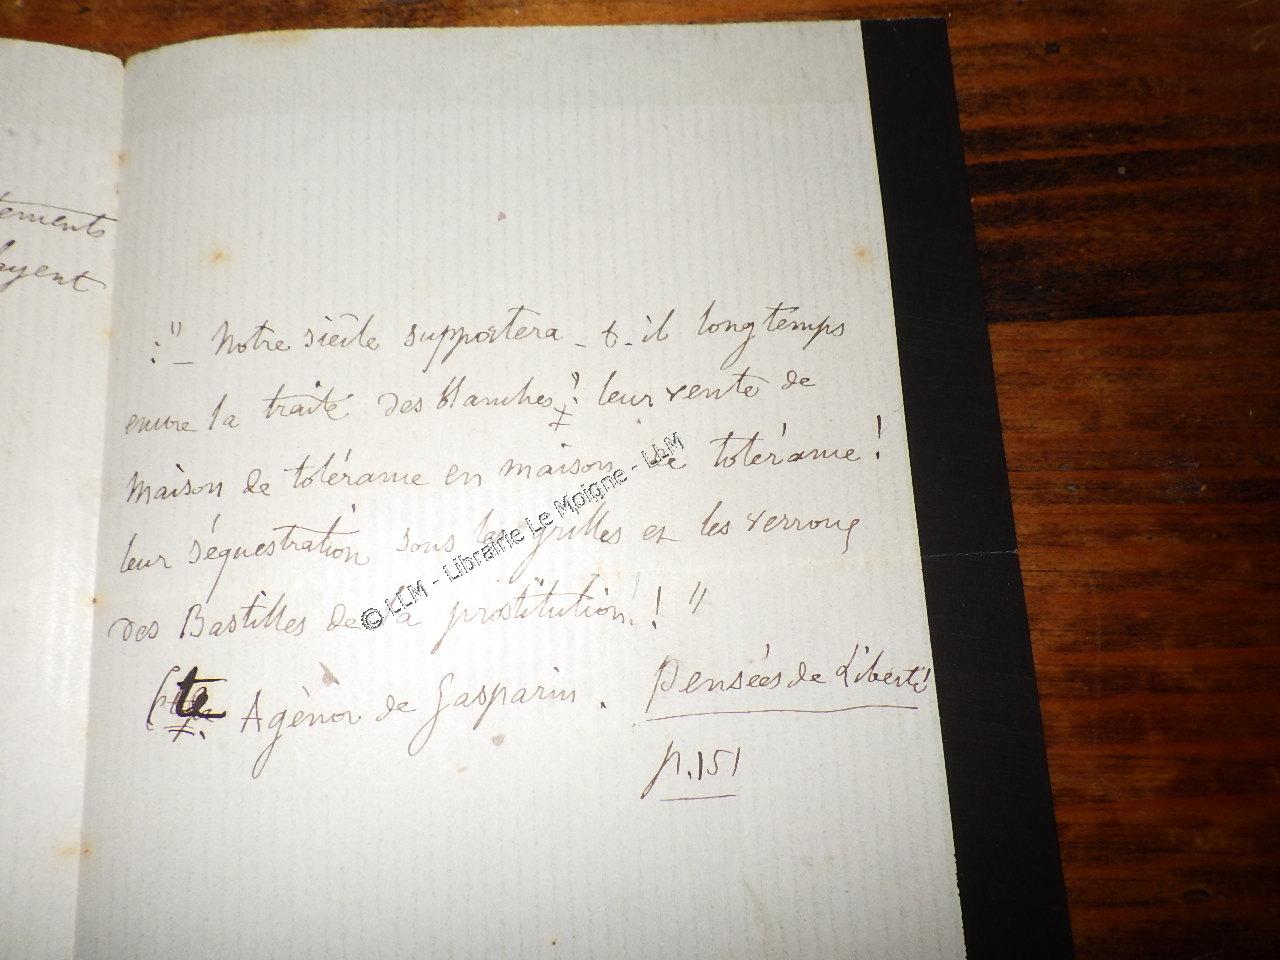 tements
ayent
:"_ Notre siècle supportera-t-il longtemps
encore la traite des blanches? leur vente de
maison de tolérance en maison de tolérance!
leur séquestration sous les grilles et les verrous
des Bastilles de la prostitution!! "
Cte Agénor de Gasparin. Pensées de Liberté
p. 151
© LLM - Librairie Le Moigne - LLM